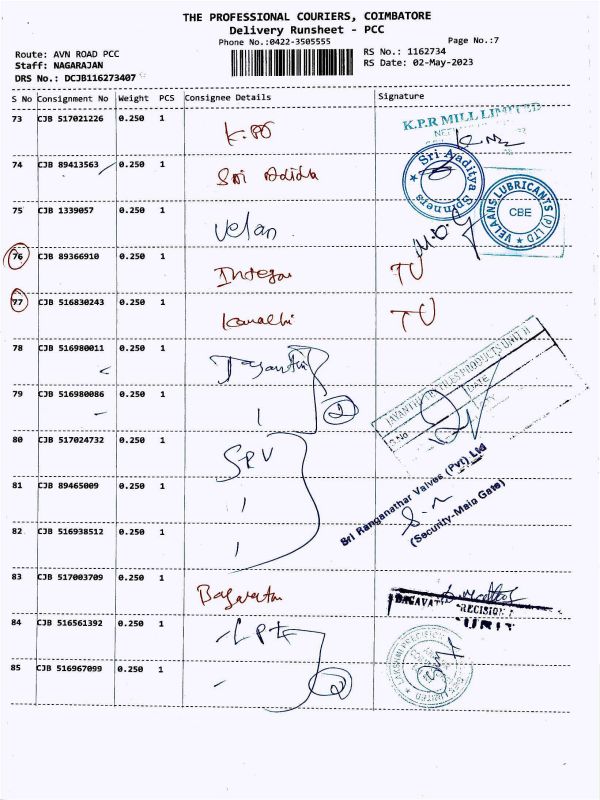 THE PROFESSIONAL COURIERS, COIMBATORE
Delivery Runsheet - PCC
Phone No.:0422-3505555
Page No.:7
Route: AVN ROAD PCC
RS No.: 1162734
Staff: NAGARAJAN
RS Date: 02-May-2023
DRS No.: DCJB116273407
S No Consignment No Weight PCS Consignee Details Signature
73 CJB 517021226 0.250 1
K.P.R MILL LIMITED
74 CJB 89413563 0.250 1 Sri
Sri Aaditya Spinners
75 CJB 1339057 0.250 1 Velan
VELAANS LUBRICANTS (P) LTD
CBE
76 CJB 89366910 0.250 1
77 CJB 516830243 0.250 1
78 CJB 516980011 0.250 1
JAYANTHI TEXTILES PRODUCTS UNIT II
DATE
79 CJB 516980086 0.250 1
2
80 CJB 517024732 0.250 1 SRV
Sri Ranganathar Valves (Pvt) Ltd
81 CJB 89465009 0.250 1
(Security-Main Gate)
82 CJB 516938512 0.250 1
83 CJB 517003709 0.250 1
UNIT
84 CJB 516561392 0.250 1
LAKSHMI PRECISION
85 CJB 516967099 0.250 1
2